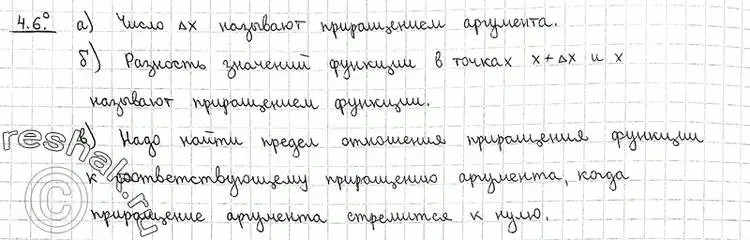 4.6° а) Число Δx называют приращением аргумента.
б) Разность значений функции в точках x+Δx и x
называют приращением функции.
в) Надо найти предел отношения приращения функции
к соответствующему приращению аргумента, когда
приращение аргумента стремится к нулю.
reshak.ru
©